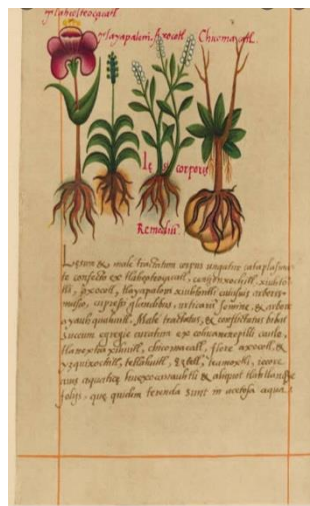 Tlayapaloni. Axocotl. Chicomacatl.
Læsi corporis
Remediū.
Læsum & male tractatum corpus ungatur cataplasma-
te confecto ex centzonxochitl, xiuhto-
tli, axocotl, tlayapaloni xiuhtontli cuiusuis arboris
musco, cupressi glandibus, urticarū semine, & arbore
ayauhquahuitl. Male tractatus, & conflictatus bibat
succum egregie ex cohuanenepilli caule,
tlanextia xihuitl, chicomacatl, flore axocotl, &
yzquixochitl, tetlahuitl, eztetl, teamoxtli,
auis aquaticæ huexocanauhtli & aliquot
folijs, quæ quidem terenda sunt in acetosa aqua.